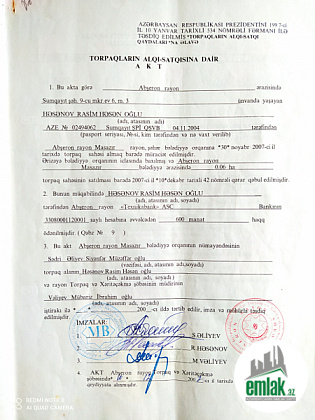 AZƏRBAYCAN RESPUBLİKASI PREZİDENTİNİ 1997-ci
İL 10 YANVAR TARİXLİ 534 NÖMRƏLİ FƏRMANI İLƏ
TƏSDİQ EDİLMİŞ "TORPAQLARIN ALQI-SATQI
QAYDALARI"NA ƏLAVƏ
TORPAQLARIN ALQI-SATQISINA DAİR
A K T
1. Bu akta görə Abşeron rayon ərazisində
Sumqayıt şəh. 9-cu mkr ev 6, m. 3 ünvanda yaşayan
HƏSƏNOV RASİM HƏSƏN OĞLU
(adı, atasının adı)
AZE № 02494062 Sumqayıt ŞPİ QSVB 04.11.2004 tərəfindən
(pasport seriyası, №-si, kim tərəfindən və nə vaxt verilib)
Abşeron rayon Masazır rayon, şəhər bələdiyyə orqanına "30" noyabr 2007-ci il
tarixdə torpaq sahəsi almaq barədə müraciət edilmişdir.
Ərizəyə bələdiyyə orqanının iclasında baxılmış və Abşeron rayon
Masazır bələdiyyə ərazisində 0.06 ha
torpaq sahəsinin satılması barədə 2007-ci il "10" dekabr tarixdə 42 nömrəli qərar qəbul edilmişdir.
2. Bunun müqabilində HƏSƏNOV RASİM HƏSƏN OĞLU
(adı, atasının adı, soyadı)
tərəfindən Abşeron rayon «Texnikabank» ASC Bankının
saylı hesabına əvvəlcədən 600 manat haqq
ödənilmişdir. ( Qəbz № 9 )
3. Bu akt Abşeron rayon Masazır bələdiyyə orqanının nümayəndəsinin
Sədri Əliyev Siyavüş Müzəffər oğlu
(vəzifəsi, adı, atasının adı, soyadı)
torpaq alanın Həsənov Rasim Həsən oğlu
(adı, atasının adı, soyadı)
və rayon Torpaq və Xəritəçəkmə şöbəsinin mütəxəssisi
Vəliyev Mübariz İbrahim oğlu
(adı, atasının adı, soyadı)
iştirakı ilə 200 -ci ildə tərtib edilir, imza və möhürlə təsdiq
edilmişdir.
İMZALAR:
MB
1. S.ƏLİYEV
2. R.HƏSƏNOV
3. M.VƏLİYEV
4. AKT Abşeron rayon Torpaq və Xəritəçəkmə
şöbəsində
emlak.az
REDMI NOTE 8
AI QUAD CAMERA